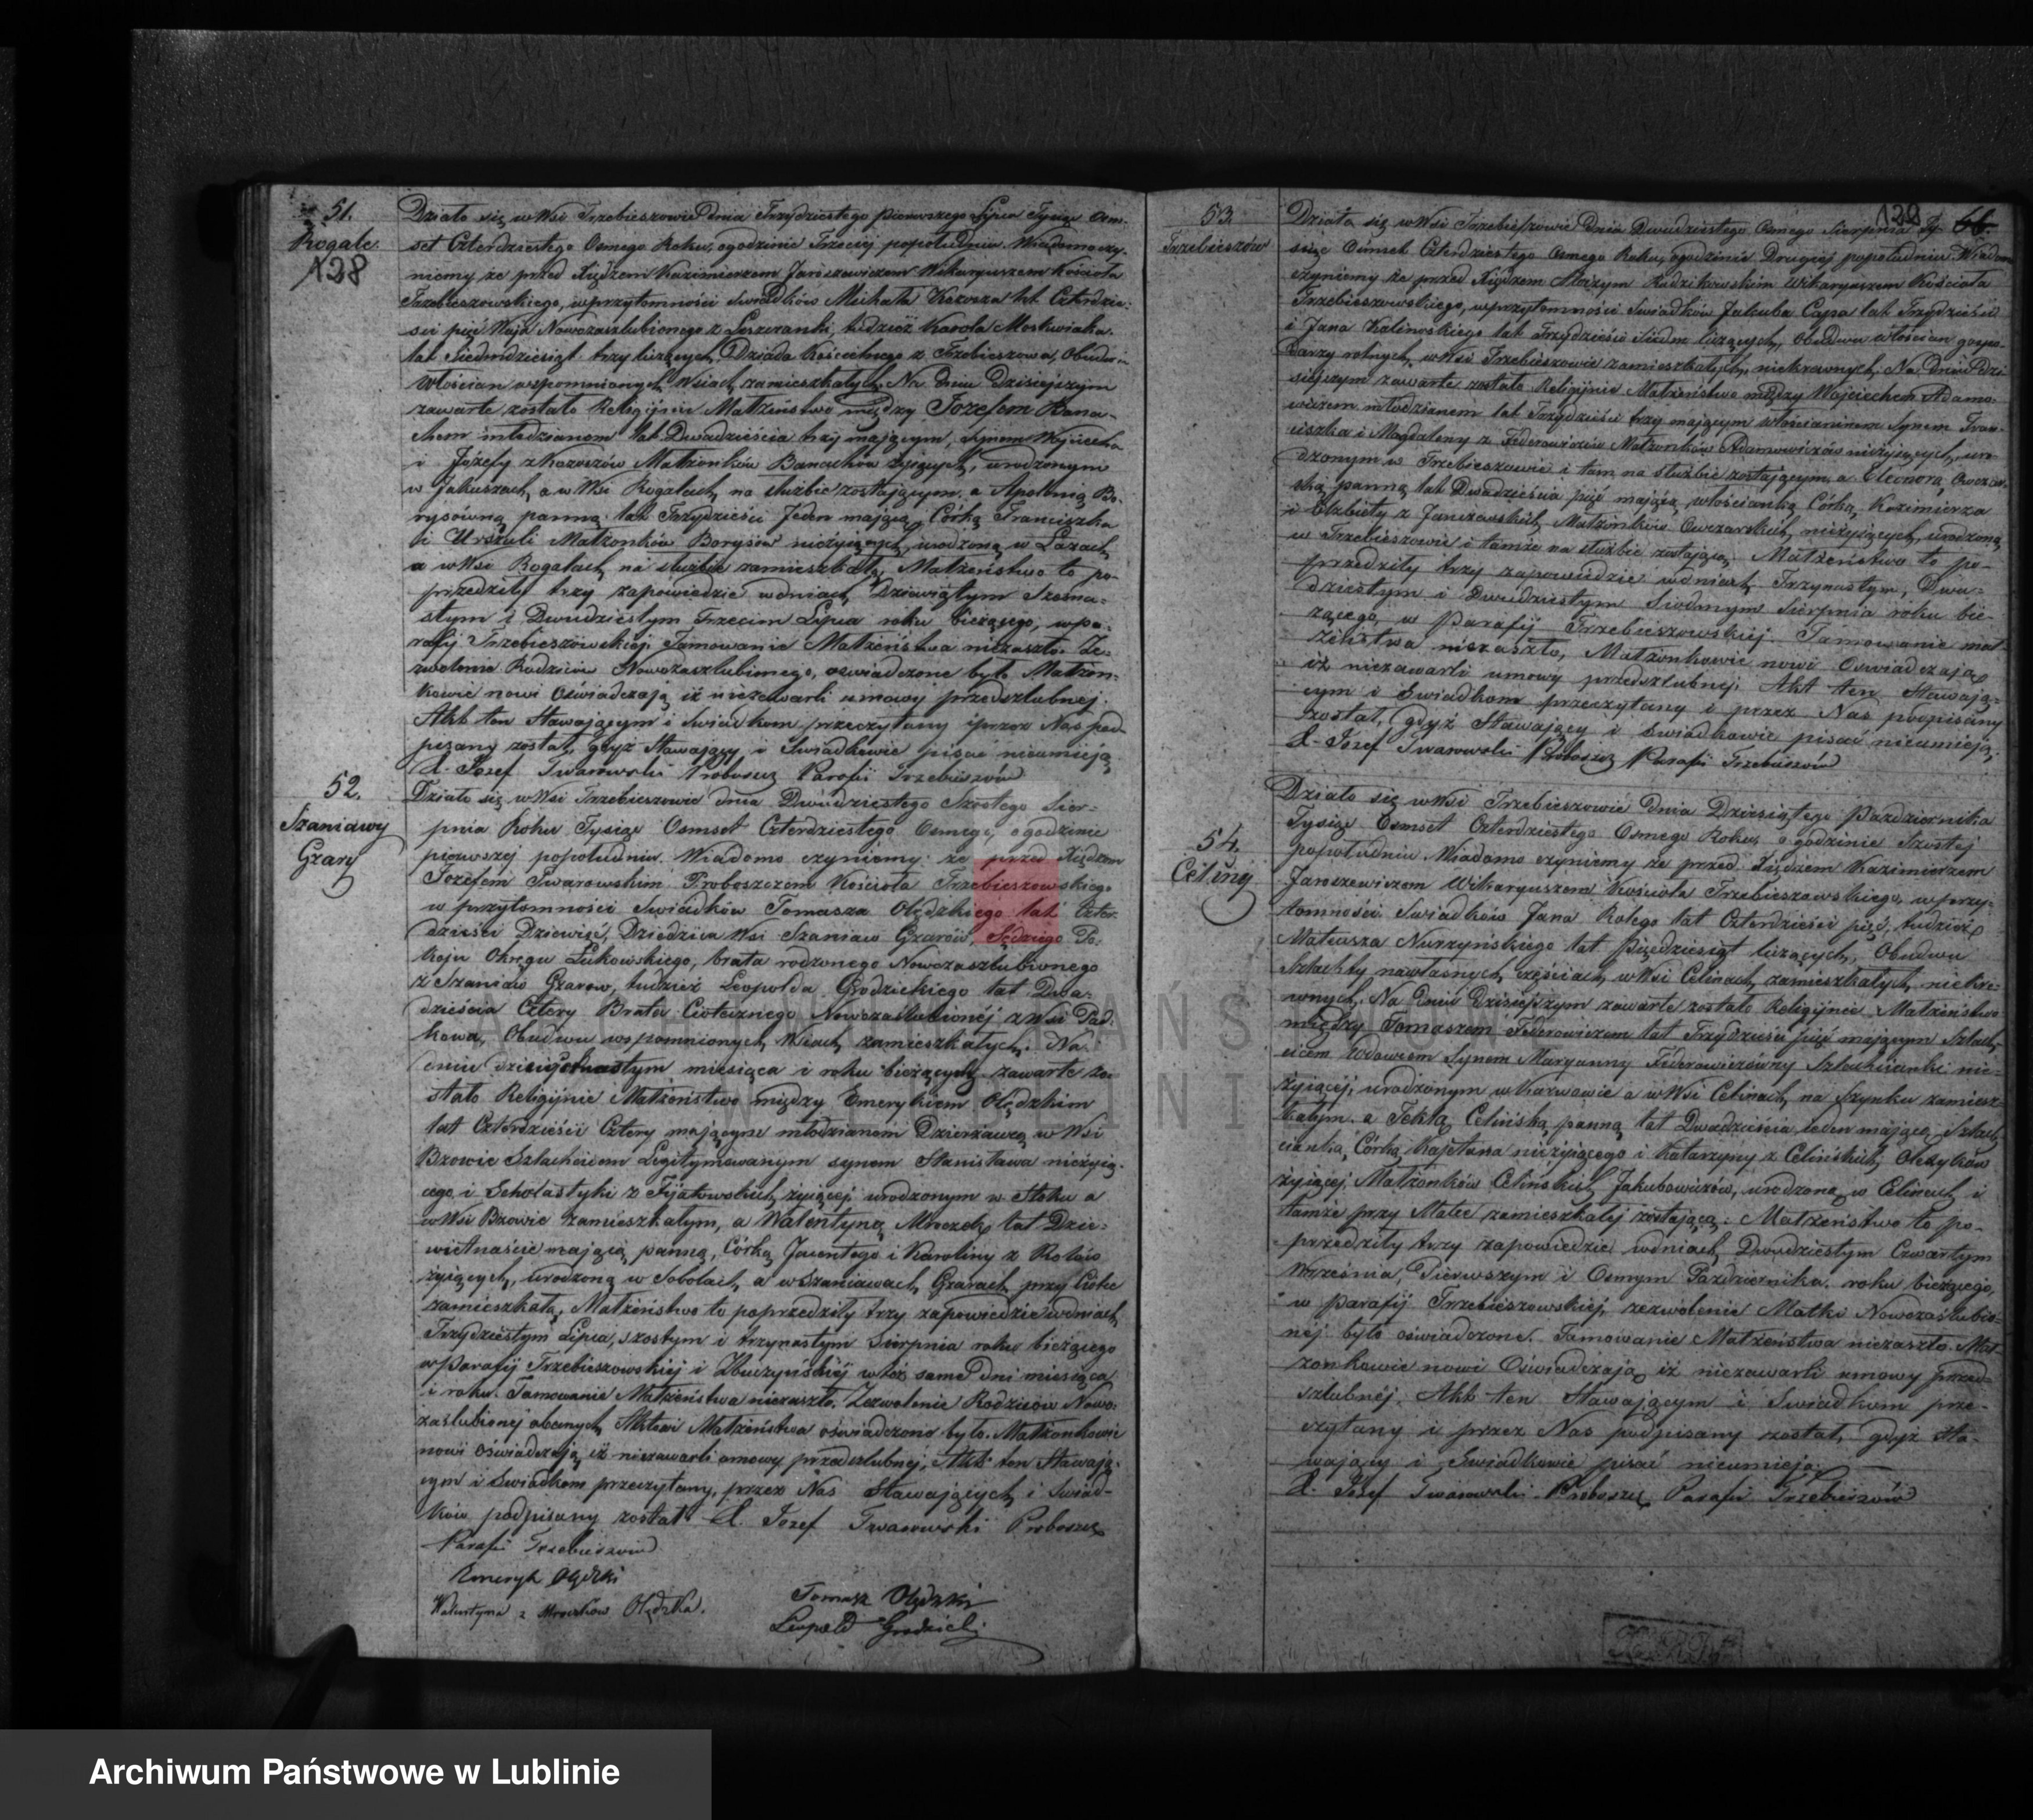 51.
Rogale.
128
Działo się w Wsi Trzebieszowie dnia Trzydziestego pierwszego Lipca Tysiąc Osm-
set Czterdziestego Osmego Roku, o godzinie Trzeciej popołudniu. Wiadomo czy-
niemy że przed Xiędzem Kazimierzem Jaroszewiczem Wikaryuszem Kościoła
Trzebieszowskiego, w przytomności Swiadków Michała Kozosza lat Czterdzie-
sci pięć Wuja Nowozaslubionego z Leszczanki, tudzież Karola Moskwiaka
lat Siedmdziesiąt trzy liczących, Dziada Kościelnego z Trzebieszowa, Obudwu
Włościan w wspomnianych Wsiach zamieszkałych, Na dniu Dzisiejszym
zawarte zostało Religijnie Małżeństwo między Jozefem Bana-
chem młodzianem lat Dwadzieścia trzy mającym, Synem Wojciecha
i Józefy z Kozoszów Małżonków Banachów żyjących, urodzonym
w Jakuszach, a w Wsi Rogalach na służbie zostającym a Apolonią Bo-
rysówną panną lat Trzydzieści Jeden mającą Córką Franciszka
i Urszuli Małżonków Borysów nieżyjących, urodzoną w Łazach
a w Wsi Rogalach na służbie zamieszkałą, Małżeństwo to po-
przedziły trzy zapowiedzie w dniach Dziewiątym Szesna-
stym i Dwudziestym Trzecim Lipca roku bieżącego, w pa-
rafij Trzebieszowskiej, Tamowanie Małżeństwa niezaszło. Ze-
zwolenie Rodziców Nowozaszlubionego, oswiadczone było Małżon-
kowie nowi Oświadczają iż niezawarli umowy przedszlubnej.
Akt ten Stawającym i Swiadkom przeczytany i przez Nas pod
pisany został, gdyż Stawający i Swiadkowie pisać nieumieją,
X. Jozef Twarowski Proboszcz Parafii Trzebieszów
52.
Szaniawy
Gzary
Działo się w Wsi Trzebieszowie dnia Dwudziestego Szostego Sier-
pnia Roku Tysiąc Osmset Czterdziestego Osmego, o godzinie
pierwszej popołudniu. Wiadomo czyniemy: że przed Xiędzem
Jozefem Twarowskim Proboszczem Kościoła Trzebieszowskiego
w przytomności Swiadków Tomasza Olędzkiego lat Czter-
dzieści Dziewięć, Dziedzica Wsi Szaniaw Gzarów Sędziego Po-
koju Okręgu Łukowskiego, brata rodzonego Nowozaszlubionego
z Szaniaw Gzarow, tudzież Leopolda Grodzickiego lat Dwa-
dzieścia Cztery Brata Ciotecznego Nowozaslubionéj z Wsi Pad-
kowa, Obudwu w wspomnionych Wsiach zamieszkałych. Na
dniu dziewiętnastym miesiąca i roku bieżących zawarte zo-
stało Religijnie Małżeństwo między Emerykiem Olędzkim
lat Czterdzieści Cztery mającym młodzianem Dzierzawcą w Wsi
Bzowie Szlachcicem Legitymowanym synem Stanisława nieżyją-
cego i Scholastyki z Fijałkowskich żyjącej urodzonym w Stoku a
w Wsi Bzowie zamieszkałym, a Walentyną Mroczek lat Dzie-
wietnaście mającą panną, Córką Jacentego i Karoliny z Rolów
żyjących, urodzoną w Sobolach, a w Szaniawach Gzarach przy
zamieszkałą, Małżeństwo to poprzedziły trzy zapowiedzie w dniach
Trzydziestym Lipca, szostym i trzynastym Sierpnia roku bieżącego
w Parafij Trzebieszowskiéj i Zbuczyńskiéj w też same dni miesiąca
i roku. Tamowanie Małżeństwa niezaszło. Zezwolenie Rodziców Nowo-
zaslubionej obecnych Aktowi Małżeństwa oświadczone było. Małżonkowie
nowi Oświadczają iż niezawarli umowy przedszlubnéj, Akt ten Stawają-
cym i Swiadkom przeczytany, przez Nas Stawających i Swiad-
ków podpisany został X. Jozef Twarowski Proboszcz
Parafii Trzebieszów
Emeryk Olędzki
Walentyna z Mroczków Olędzka.
Tomasz Olędzki
Leopold Grodzicki
129 66.
53.
Trzebieszów
Działo się w Wsi Trzebieszowie Dnia Dwudziestego Osmego Sierpnia Ty-
siąc Osmset Czterdziestego Osmego Roku, o godzinie Drugiéj popołudniu. Wiadomo
czyniemy że przed Xiędzem Radzikowskim Wikaryuszem Kościoła
Trzebieszowskiego, w przytomności Swiadków Jakuba Capa lat Trzydzieści
i Jana Kalinoskiego lat Trzydzieści Siedm liczących, Obudwu włościan gospo-
darzy rolnych w Wsi Trzebieszowie zamieszkałych, niekrewnych. Na Dniu Dzi-
siejszym zawarte zostało Religijnie Małżeństwo między Wojciechem Adamo-
wiczem młodzianem lat Trzydzieści trzy mającym włościaninem Synem Fran-
ciszka i Magdaleny z Federowiczów Małżonków Adamowiczów nieżyjących, uro-
dzonym w Trzebieszowie i tam na służbie zostającym, a Eleonorą Owczar-
ską panną lat Dwadzieścia pięć mającą, włościanką Córką Kazimierza
i Elżbiety z Janczewskich Małżonków Owczarskich, nieżyjących, urodzoną
w Trzebieszowie i tamże na służbie zostającą. Małżeństwo to po-
przedziły trzy zapowiedzie w dniach Trzynastym, Dwu-
dziestym i Dwudziestym Siodmym Sierpnia roku bie-
żącego, w Parafij Trzebieszowskiéj. Tamowanie mał-
żeństwa niezaszło, Małżonkowie nowi Oswiadczają
iż niezawarli umowy przedszlubnéj, Akt ten Stawają-
cym i Swiadkom przeczytany i przez Nas podpisany
został, gdyż Stawający i Swiadkowie pisać nieumieją.
X. Jozef Twarowski Proboszcz Parafii Trzebieszów
54.
Celiny
Działo się w Wsi Trzebieszowie Dnia Dziesiątego Pazdziernika
Tysiąc Osmset Czterdziestego Osmego Roku, o godzinie Szostej
popołudniu. Wiadomo czyniemy że przed Xiędzem Kazimierzem
Jaroszewiczem Wikaryuszem Kościoła Trzebieszowskiego, w przy-
tomności Swiadków Jana Kołego lat Czterdzieści pięć, tudzież
Mateusza Nurzyńskiego lat Pięćdziesiąt liczących, Obudwu
Szlachty na własnych częściach w Wsi Celinach zamieszkałych, niekre-
wnych, Na Dniu Dzisiejszym zawarte zostało Religijnie Małżeństwo
między Tomaszem Federowiczem lat Trzydzieści pięć mającym Szlach-
cicem Wdowcem Synem Maryanny Federowiczówny Szlachcianki nie-
żyjącéj, urodzonym w Karwowie a w Wsi Celinach na Szynku zamiesz-
kałym. a Teklą Celińską panną lat Dwadzieścia Jeden mającą Szlach-
cianką, Córką Kajetana nieżyjącego i Katarzyny z Celińskich Oledyków
żyjącej, Małżonków Celińskich Jakubowiczów, urodzoną w Celinach i
tamże przy Matce zamieszkałej zostającą. Małżeństwo to po-
przedziły trzy zapowiedzie w dniach Dwudziestym Czwartym
Września, Pierwszym i Osmym Pazdziernika roku bieżącego
w Parafij Trzebieszowskiej, zezwolenie Matki Nowozaślubio-
néj było oświadczone. Tamowanie Małżeństwa niezaszło. Mał-
żonkowie nowi Oświadczają iż niezawarli umowy przed-
szlubnéj, Akt ten Stawającym i Swiadkom prze-
czytany i przez Nas podpisany został, gdyż Sta-
wający i Swiadkowie pisać nieumieją.
X. Jozef Twarowski Proboszcz Parafii Trzebieszów
Archiwum Państwowe w Lublinie